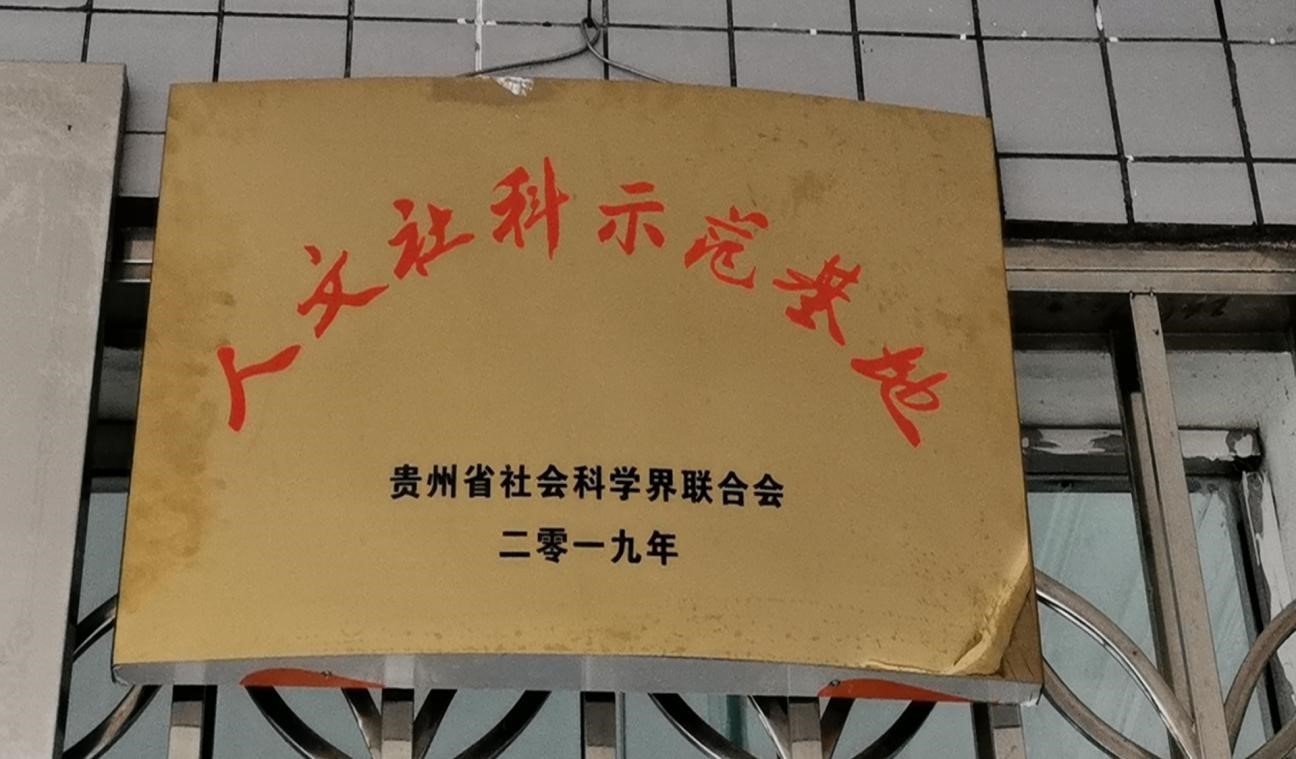 人文社科示范基地
贵州省社会科学界联合会
二零一九年